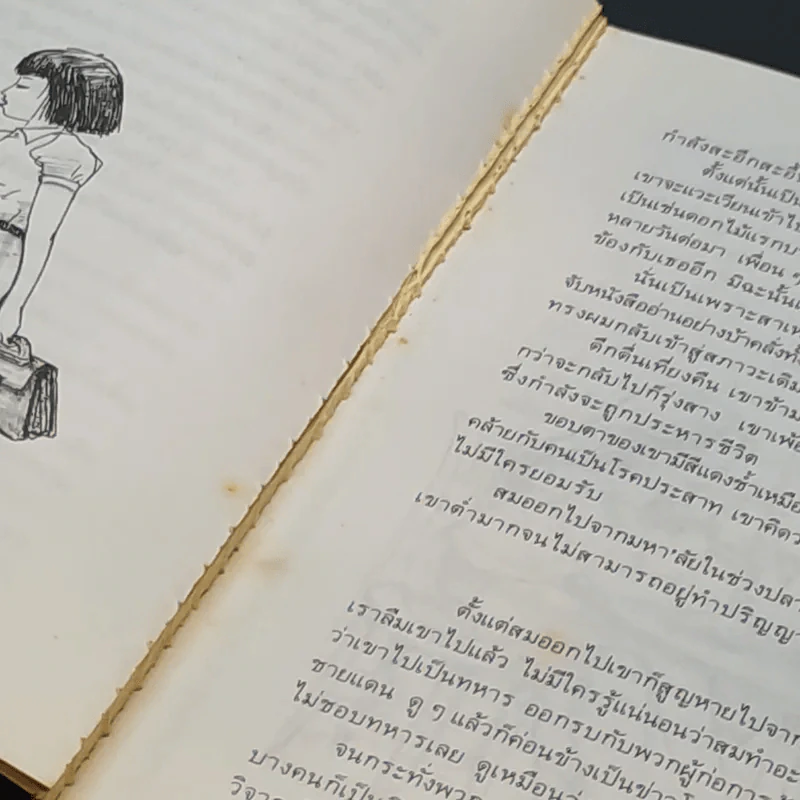 กำลังสะอึกสะอื้น
ตั้งแต่นั้นเป็น
เขาจะแวะเวียนเข้าไป
เป็นเช่นดอกไม้แรกบา
หลายวันต่อมา เพื่อน ๆ
ข้องกับเธออีก มีฉะนั้น
นั่นเป็นเพราะสาเห
จับหนังสืออ่านอย่างบ้าคลั่งทั้
ทรงผมกลับเข้าสู่สภาวะเดิม
ดึกดื่นเที่ยงคืน เขาข้าม
กว่าจะกลับไปก็รุ่งสาง เขาเพ้อ
ซึ่งกำลังจะถูกประหารชีวิต
ขอบตาของเขามีสีแดงช้ำเหมือ
คล้ายกับคนเป็นโรคประสาท เขาคิดว
ไม่มีใครยอมรับ
สมออกไปจากมหา'ลัยในช่วงปลา
เขาต่ำมากจนไม่สามารถอยู่ทำปริญญา
ตั้งแต่สมออกไปเขาก็สูญหายไปจาก
เราลืมเขาไปแล้ว ไม่มีใครรู้แน่นอนว่าสมทำอะ
ว่าเขาไปเป็นทหาร ออกรบกับพวกผู้ก่อการร้
ชายแดน ดู ๆ แล้วก็ค่อนข้างเป็นข่าว
ไม่ชอบทหารเลย ดูเหมือนว่
จนกระทั่งพวก
บางคนก็เป็น